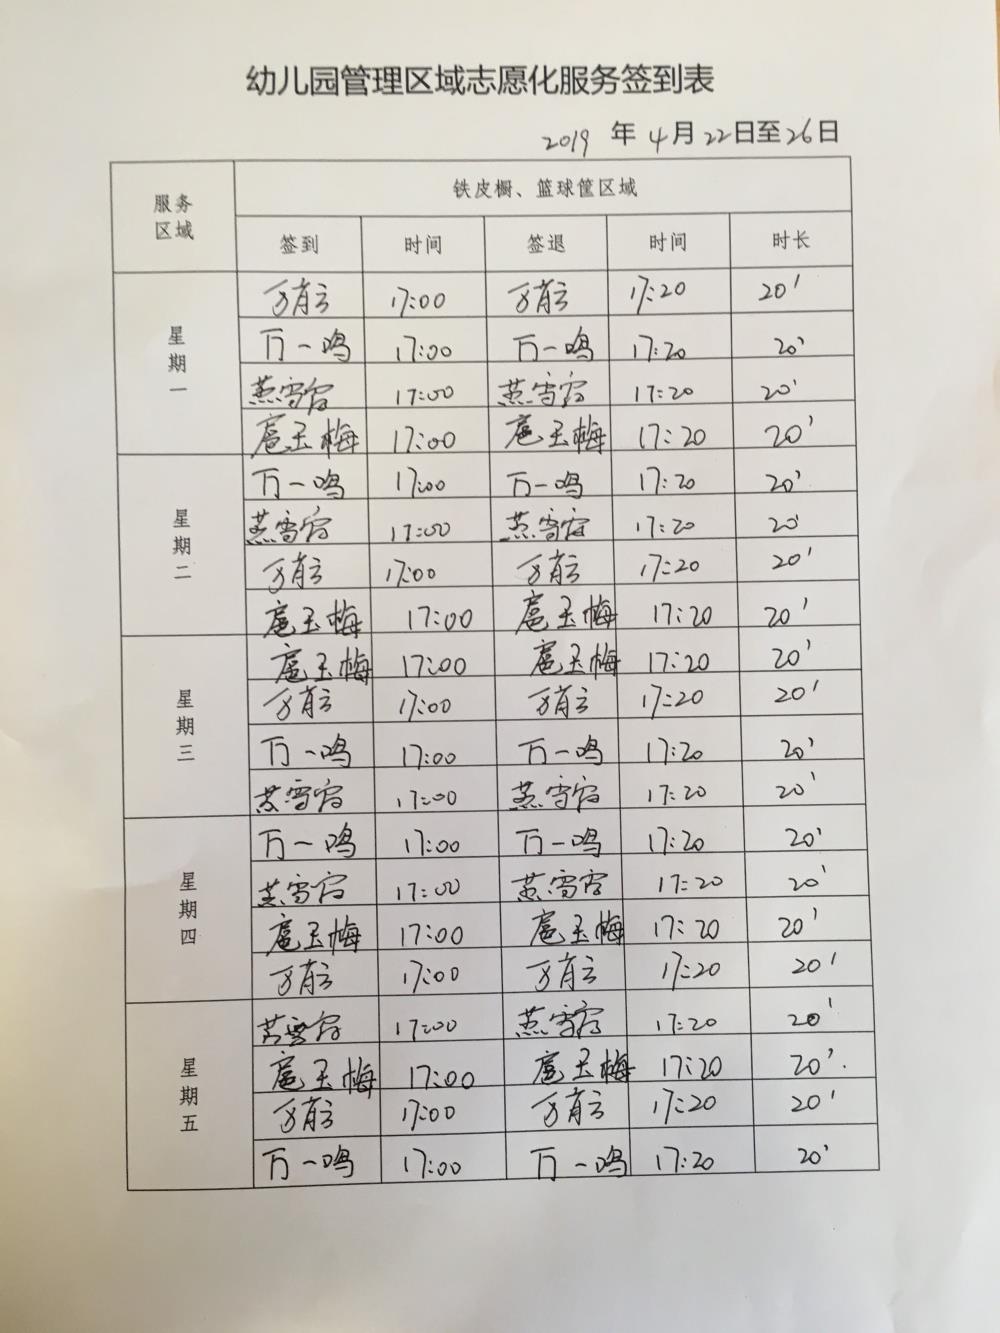 幼儿园管理区域志愿化服务签到表
2019 年 4月22日至26日
服务区域 铁皮橱、篮球筐区域
签到 时间 签退 时间 时长
星期一
17:00 17:20 20'
万一鸣 17:00 万一鸣 17:20 20'
17:00 17:20 20'
扈玉梅 17:00 扈玉梅 17:20 20'
星期二
万一鸣 17:00 万一鸣 17:20 20'
17:00 17:20 20'
17:00 17:20 20'
扈玉梅 17:00 扈玉梅 17:20 20'
星期三
扈玉梅 17:00 扈玉梅 17:20 20'
17:00 17:20 20'
万一鸣 17:00 万一鸣 17:20 20'
17:00 17:20 20'
星期四
万一鸣 17:00 万一鸣 17:20 20'
17:00 17:20 20'
扈玉梅 17:00 扈玉梅 17:20 20'
17:00 17:20 20'
星期五
17:00 17:20 20'
扈玉梅 17:00 扈玉梅 17:20 20'.
17:00 17:20 20'
万一鸣 17:00 万一鸣 17:20 20'